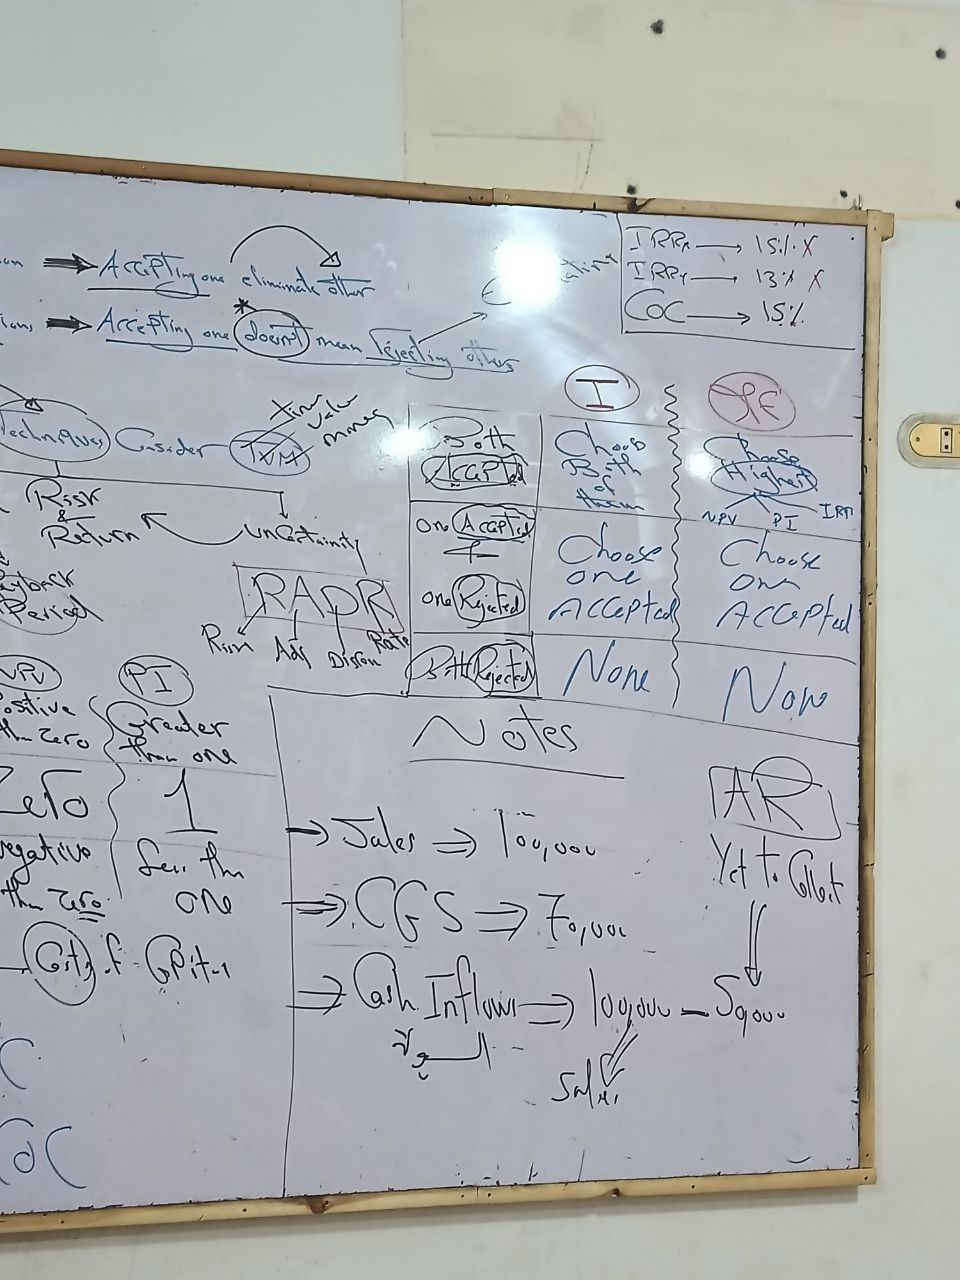 Accepting one eliminate other
Accepting one doesn't mean rejecting others
IRRA → 15% X
IRRY → 13% X
COC → 15%
Techniques Consider TVM
Time Value money
Risk & Return
Uncertainity
Payback Period
RADR
Risk Adj Discon Rate
I
Both Accepted
Choose Both of them
Choose Highest
NPV PI IRR
one Accepted + one Rejected
Choose one Accepted
Choose one Accepted
Both Rejected
None
Non
NPV
PI
Positive than Zero
Greater than one
Zero
1
negative than Zero
less than one
Cost of Capital
COC
Notes
→ Sales ⇒ 100,000
⇒ CGS ⇒ 70,000
⇒ Cash Inflows ⇒ 100,000 - 50,000
Sales
AR
Yet to Collect